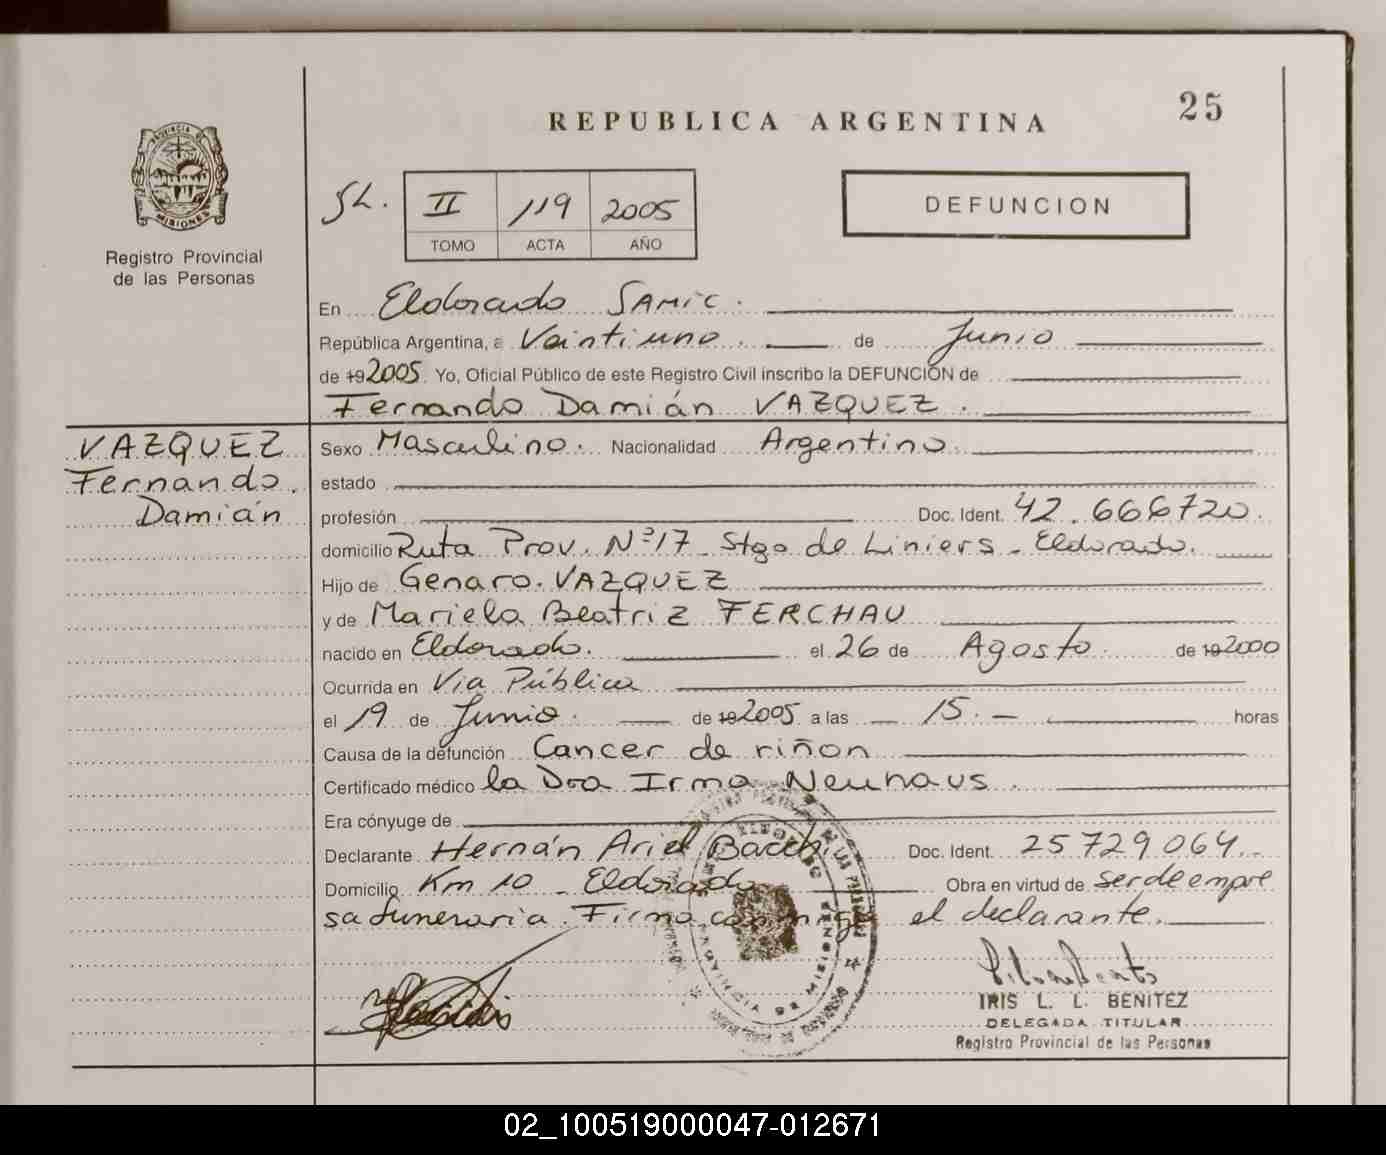 25
REPUBLICA ARGENTINA
PROVINCIA DE
MISIONES
Registro Provincial
de las Personas
SL.
II 119 2005
TOMO ACTA AÑO
DEFUNCION
En Eldorado SAMIC.
República Argentina, a Veintiuno. de Junio
de 19 2005. Yo, Oficial Público de este Registro Civil inscribo la DEFUNCIÓN de
Fernando Damián VAZQUEZ.
VAZQUEZ
Fernando.
Damián
Sexo Masculino. Nacionalidad Argentino
estado
profesión Doc. Ident. 42.666720.
domicilio Ruta Prov. Nº 17 - Stgo de Liniers - Eldorado.
Hijo de Genaro. VAZQUEZ
y de Mariela Beatriz FERCHAU
nacido en Eldorado. el 26 de Agosto. de 19 2000
Ocurrida en Via Pública
el 19 de Junio. de 19 2005 a las 15.- horas
Causa de la defunción Cancer de riñon
Certificado médico la Dra Irma Neuhaus.
Era cónyuge de
Declarante Hernán Ariel Bacchi Doc. Ident. 25729064.-
Domicilio Km 10 - Eldorado Obra en virtud de ser de empre
sa funeraria. Firma conmigo el declarante.
IRIS L. L. BENITEZ
DELEGADA TITULAR
Registro Provincial de las Personas
PROVINCIA DE MISIONES
02_100519000047-012671